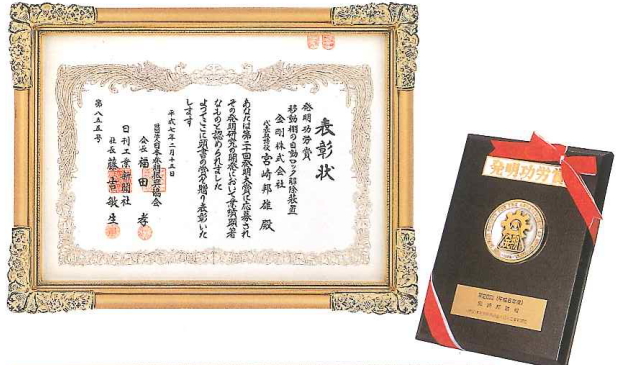 表彰状
発明功労賞
移動棚の自動ロック解除装置
金剛株式会社
代表取締役 宮崎邦雄 殿
あなたは第二十回発明大賞に応募され
その発明研究の開発において業績顕著
なものと認められました
よってここに頭書の賞を贈り表彰いた
します
平成七年二月十三日
財団法人日本発明振興協会
会長 福田 孝
日刊工業新聞社
社長 藤吉敏生
第八五五号
発明功労賞